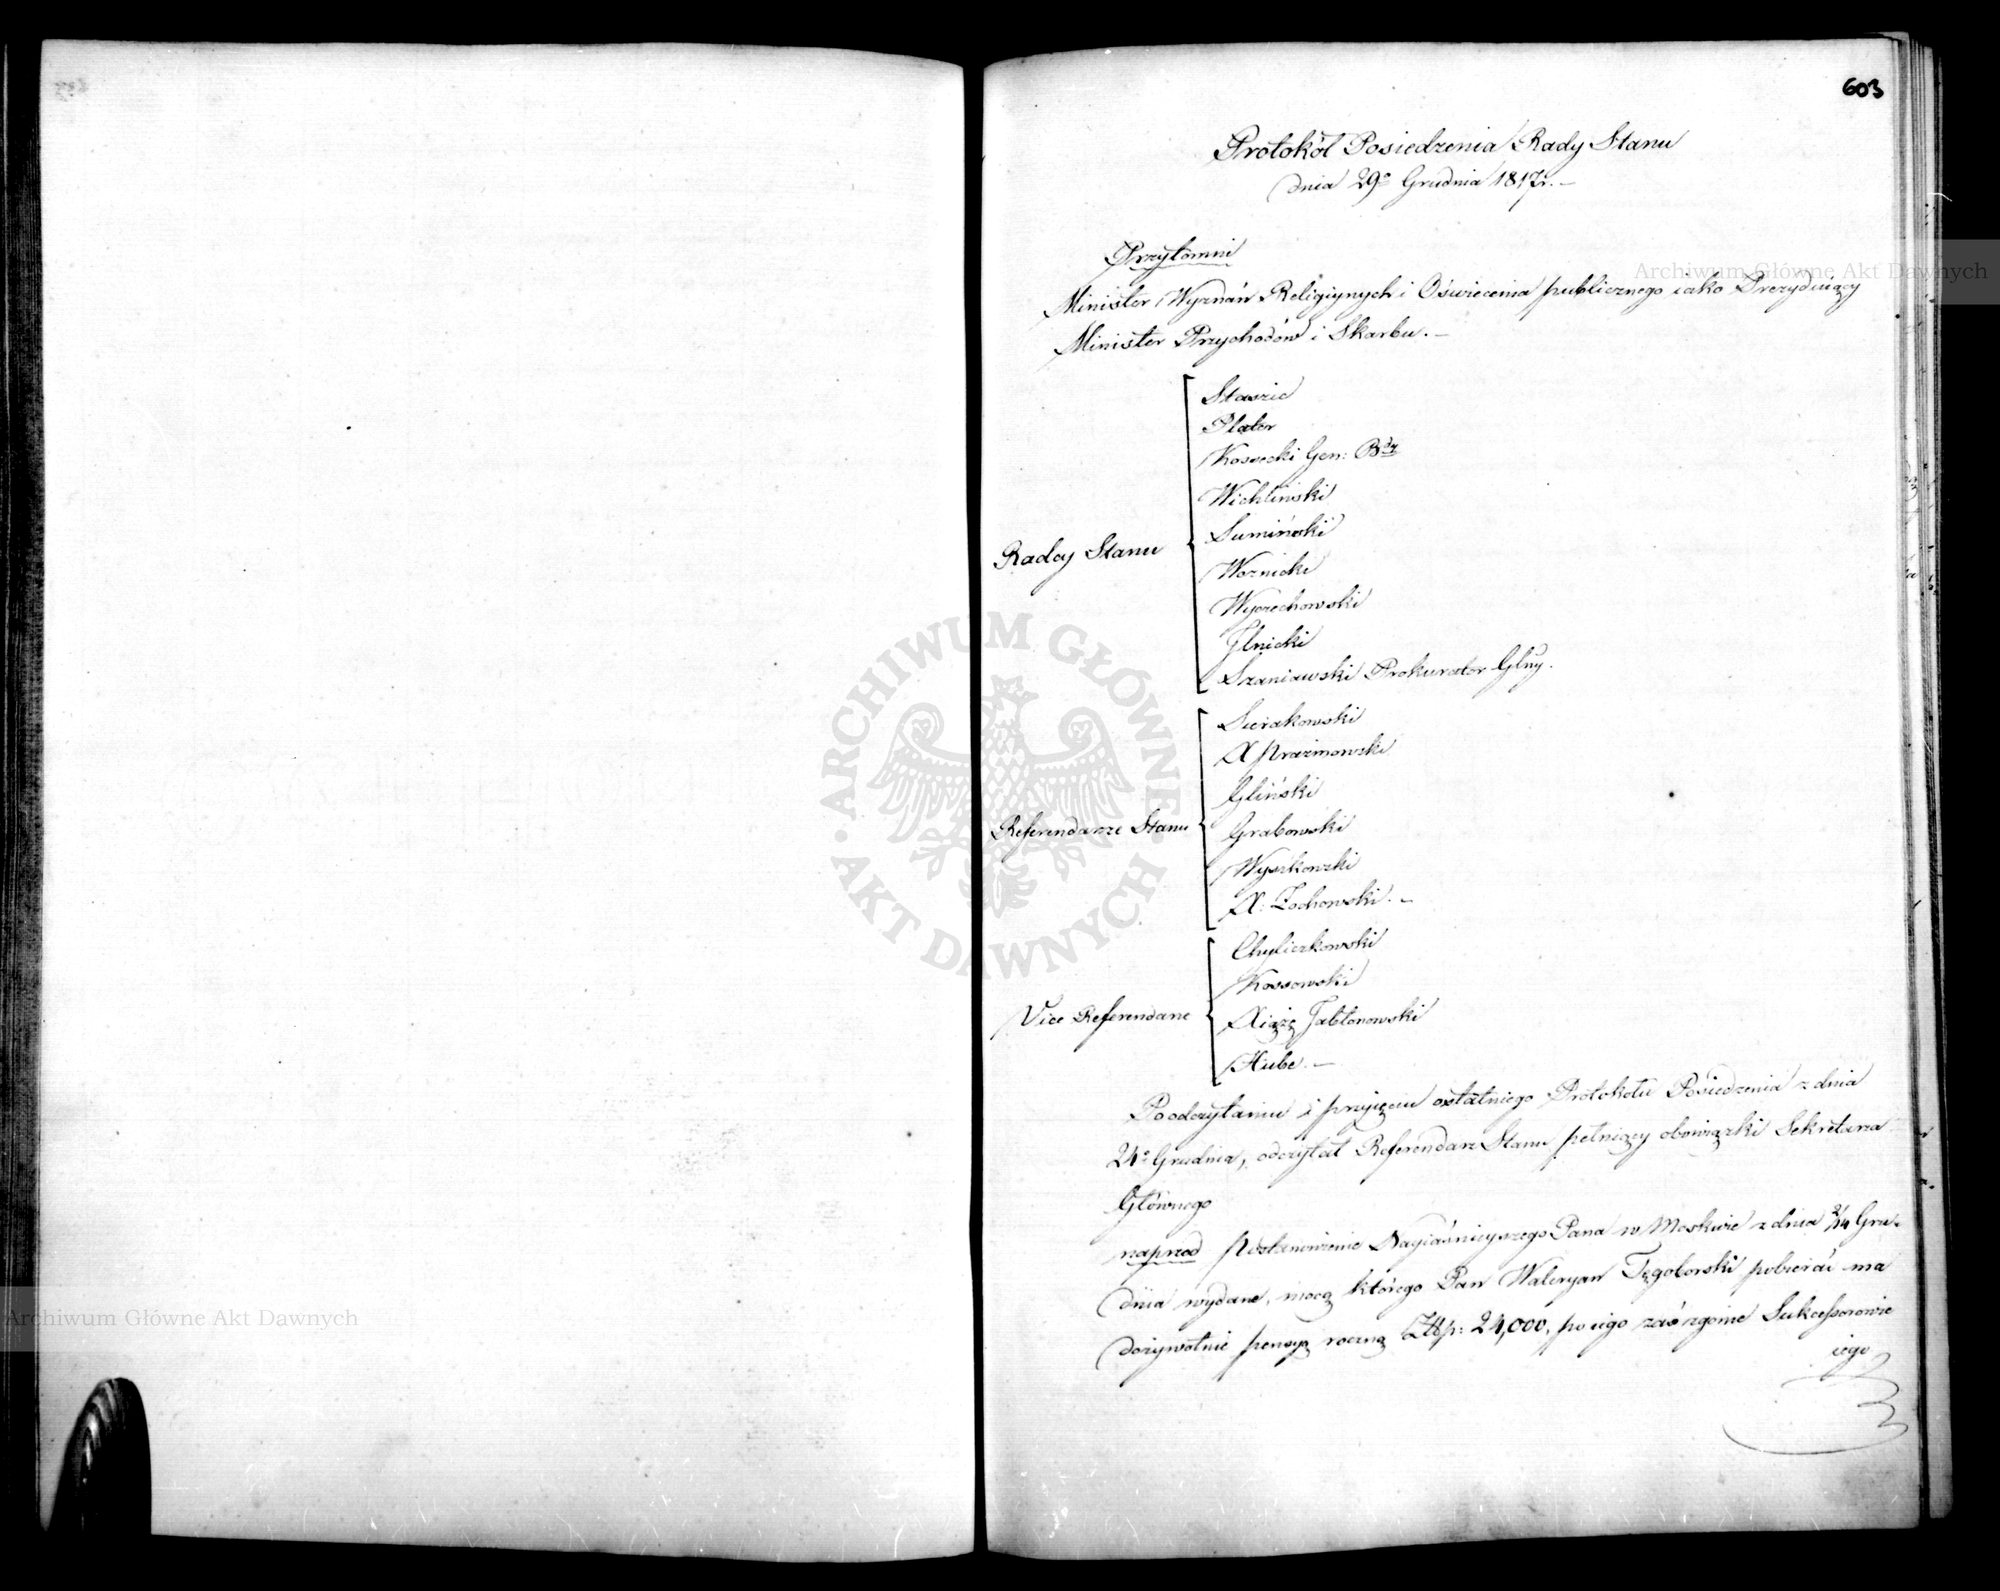 603
Protokół Posiedzenia Rady Stanu
dnia 29º Grudnia 1817r. –
Przytomni
Minister Wyznań Religiynych i Oświecenia publicznego iako Prezyduiący
Minister Przychodów i Skarbu. –
Radcy Stanu
Staszic
Plater
Kossecki Gen: Bdy
Wichliński
Sumiński
Woznicki
Wyczechowski
Jlnicki
Szaniawski Prokurator Glny.
Referendarze Stanu
Sierakowski
X Prazmowski
Gliński
Grabowski
Wyszkowski
X: Zochowski. –
Vice Referendarze
Chyliczkowski
Kossowski
Xiążę Jabłonowski
Hube. –
Po odczytaniu i przyięciu ostatniego Protokołu Posiedzenia z dnia
24º Grudnia, odczytał Referendarz Stanu pełniący obowiązki Sekretarza
Głównego
naprzod Postanowienie Nayiaśnieyszego Pana w Moskwie z dnia 2/14 Gru-
dnia wydane, mocą którego Pan Waleryan Tęgoborski pobierać ma
dożywotnie pensyą roczną Złłp: 24,000, po iego zaś zgonie Sukcessorowie
iego
Archiwum Główne Akt Dawnych
Archiwum Główne Akt Dawnych
ARCHIWUM GŁÓWNE · AKT DAWNYCH ·